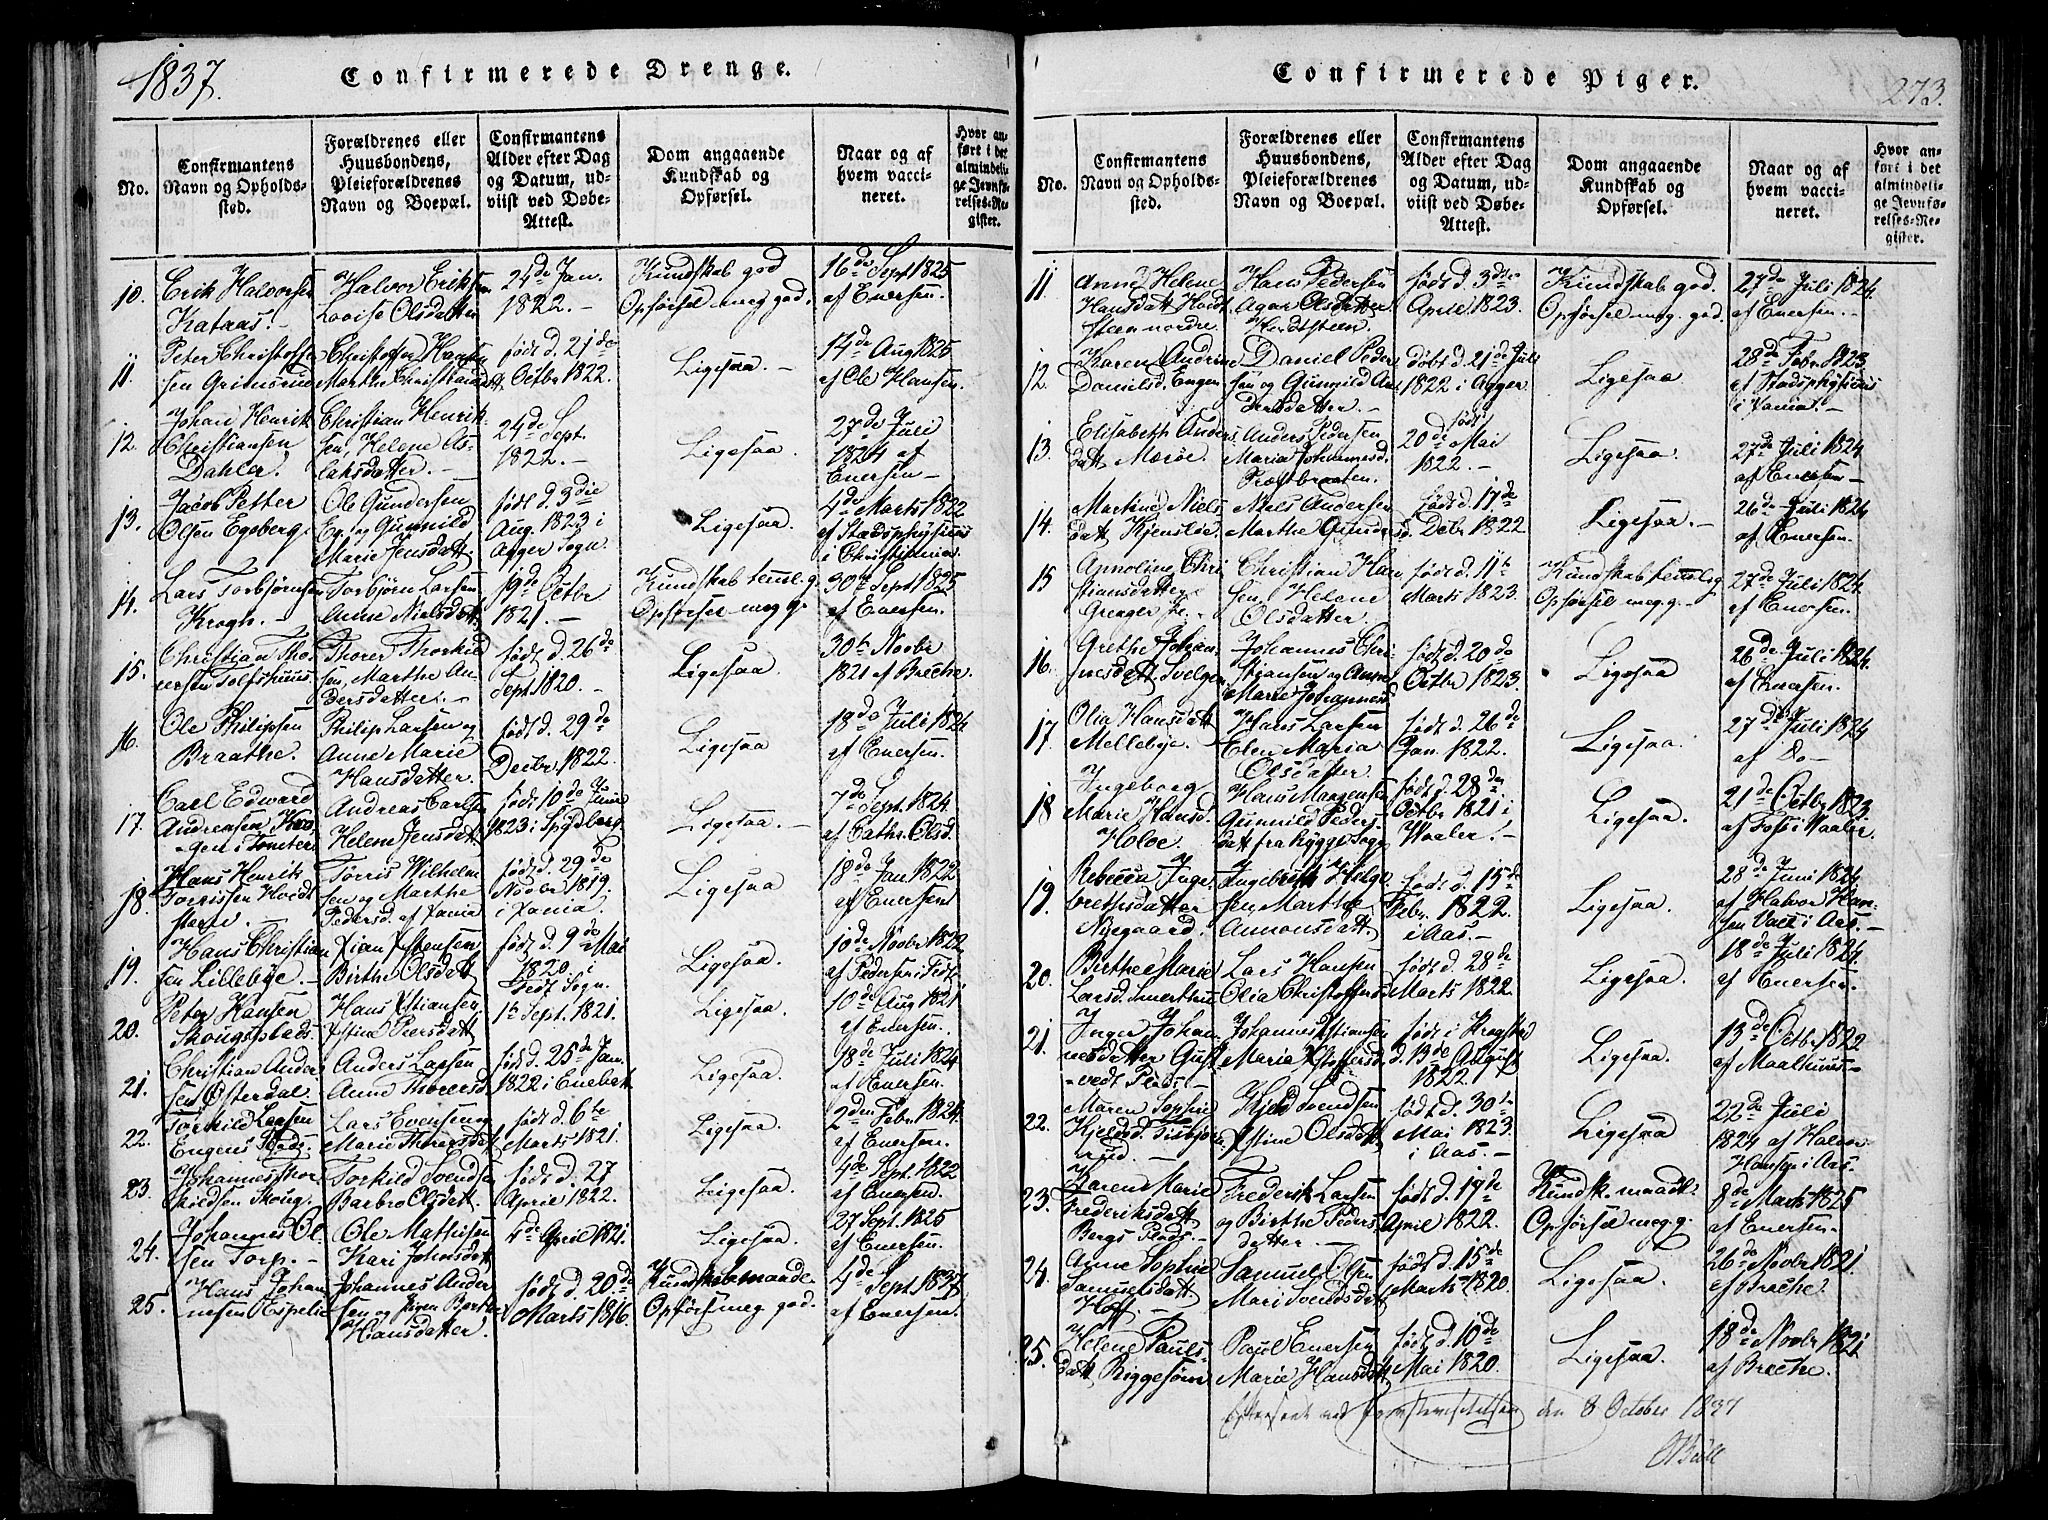 1837.
Confirmerede Drenge.
No.
Confirmantens Navn og Opholdssted.
Forældrenes eller Huusbondens, Pleieforældrenes Navn og Boepæl.
Confirmantens Alder efter Dag og Datum, udviist ved Døbe-Attest.
Dom angaaende Kundskab og Opførsel.
Naar og af hvem vaccineret.
Hvor anført i det almindelige Jevnførelses-Register.
10. Erik Halvorsen Kataas. Halvor Eriksen Lovise Olsdatter 24de Jan. 1822. Kundskab god Opførsel meg. god. 16de Sept 1825 af Enersen.
11. Peter Christoffersen Grimsrud Christoffer Hansen Marthe Christiansdatt. født d. 21de Octbr 1822. Ligesaa. 14de Aug 1825 af Ole Hansen.
12. Johan Henrik Christiansen Dahler. Christian Henriksen, Helene Aslaksdatter. 24de Sept. 1822. Ligesaa. 27de Juli 1824 af Enersen
13. Jacob Petter Olsen Egeberg. Ole Gundersen Eg. og Gunnild Marie Jensdatt. født d. 3die Aug. 1823 i Agger Sogn. Ligesaa. 4de Marts 1822 af Stadsphysicus i Christiania
14. Lars Torbjørnsen Krogh. Torbjørn Larsen Anne Nielsdatt. 19de Octbr 1821. Kundskab temel. g. Opførsel meg g. 30te Sept 1825 af Enersen.
15. Christian Thorersen Tolfshuus Thorer Thorkildsen, Marthe Andersdatter. født d. 26de Sept 1820. Ligesaa 30te Novbr 1821 af Breche.
16. Ole Philipsen Braathe. Philip Larsen og Anne Marie Hansdatter. født d. 29de Decbr. 1822. Ligesaa 18de Juli 1824 af Enersen.
17. Carl Edward Andreasen i Tomter Andreas Carlsen Helene Jensdatt. født 10de Junii 1823 i Spydberg Ligesaa. 7de Sept. 1824 af Cathr. Olsd.
18. Hans Henrik Torrissen Hvidtsteen. Torris Wilhelmsen og Marthe Pedersd. af Xania født d. 29de Novbr 1819. i Xania. Ligesaa 18de Jan 1822 af Enersen
19. Hans Christiansen Lillebye. Xtian Xstensen Birthe Olsdatt. født d. 9de Mai 1820. i Sogn. Ligesaa. 10de Novbr 1822 af Pedersen i
20. Peter Hansen Skougsplads. Hans Xstiansen Xstine Peersdatt. 1te Sept. 1821. Ligesaa. 10de Aug 1821 af Enersen.
21. Christian Andersen Østerdal. Anders Larsen Anne Thorersd. fød d. 25de Jan. 1822 i Enebak. Ligesaa. 18de Juli 1824 af Enersen.
22. Torkild Larsen Engens Plads. Lars Evensen og Marie Thoresdatt. født d. 6te Marts 1821. Ligesaa. 2den Febr. 1824. af Enersen.
23. Johannes Thorkildsen Skoug. Torkild Svendsen Barbro Olsdatt. født d. 27 April 1822. Ligesaa. 4de Sept. 1822 af Enersen.
24. Johannes Olsen Torp. Ole Mathisen Kari Johnsdatt. 4de April 1821. Ligesaa. 27 Sept. 1825 af Enersen.
25. Hans Johannesen Espelie Johannes Andersen og Pigen Berthe Hansdatter. født d. 20de Marts 1816. Kundskab maade. Opførs meg god. 4de Sept. 1837 af Enersen.
Confirmerede Piger.
273.
No.
Confirmantens Navn og Opholdssted.
Forældrenes eller Huusbondens, Pleieforældrenes Navn og Boepæl.
Confirmantens Alder efter Dag og Datum, udviist ved Døbe-Attest.
Dom angaaende Kundskab og Opførsel.
Naar og af hvem vaccineret.
Hvor anført i det almindelige Jevnførelses-Register.
11. Anne Helene Hansdatt. Hvidtsteen nordre Hans Pedersen Agar Olsdatter Hvidtsteen. født d. 3die April 1823. Kundskab god. Opførsel meg. god. 27de Juli 1824. af Enersen.
12. Karen Andrine Danielsd. Engen Daniel Pedersen og Gunnild Andersdatter. døbt d. 21de Juli 1822 i Agger Ligesaa 28de Febr. 1823 af Stadsphysicus i Xania.
13. Elisabeth Andersdatt. Mærøe. Anders Pedersen Maria Johannesd. Præstbraaten. født 20de Mai 1822. Ligesaa. 27de Juli 1824 af Enersen
14. Martine Nielsdatt. Kjensløe Niels Andersen Marthe Gundersd. født d. 17de Debr 1822 Ligesaa. 26de Juli 1824 af Enersen.
15 Annoline Christiansdatter Christian Hansen, Helene Olsdatter. født d. 11te Marts 1823. Kundskab temelig Opførsel meg. g. 27de Juli 1824 af Enersen.
16. Grethe Johannesdatt. Svelgen Johannes Christiansen og Anne Marie Johannesd. født d. 20de Octbr 1823. Ligesaa 26de Juli 1824. af Enersen.
17. Olia Hansdatt. Mellebye. Hans Larsen Elen Maria Olsdatter. født d. 26de Jan. 1822. Ligesaa. 27de Juli 1824 af Do
18 Ingeborg Marie Hansd. Holøe Hans Magnesen Gunnild Pedersdatt fra Rygge Sogn født d. 28de Octbr 1821 i Waaler. Ligesaa. 21de Octbr 1823. af Foss i Waaler.
19. Rebecca Ingebrethsdatter Nyegaard. Ingebreth Helgesen, Marthe Amonsdatt. født d. 15de Febr. 1822. i Aas. Ligesaa. 28de Juni 1824 af Halvor Hansen i Aas.
20. Birthe Marie Larsd. Lars Hansen Olia Christoffersd. født d. 28de Marts 1822. Ligesaa. 18de Juli 1824. af Enersen.
21. Inger Johannesdatter Gustvedt Plads. Johannes Xstiansen Maria Xstoffersd. født i Kragstad d. 13de August 1822. Ligesaa. 13de Octbr 1822 af Maalhuus
22. Maren Sophie Kjeldsd. Kjeld Svendsen Xstine Olsdatt. født d. 30te Mai 1823. i Aas. Ligesaa 22de Juli 1824 af Halvor Hansen i Aas.
23. Karen Marie Frederiksdatt. Bergs Plads. Frederik Larsen og Birthe Pedersdatter. født d. 19de April 1822. Kundsk. maadl. Opførsel meg. g. 8de Marts 1825 af Enersen.
24. Anne Sophie Samuelsdatt. Hoff. Samuel Olsen Mari Svendsdatt. født d. 15de Marts 1820. Ligesaa. 26de Novbr 1821. af Breche.
25. Helene Paulsdatt. Riggesørm Paul Enersen Marie Hansdatt. født d. 10de Mai 1820. Ligesaa. 18de Novbr 1821 af Breche.
Efterseet ved Provstevisitatsen den 8 October 1837